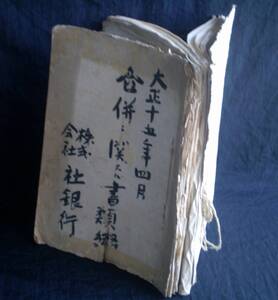 大正十五年四月
合併ニ関スル書類綴
株式会社 社銀行